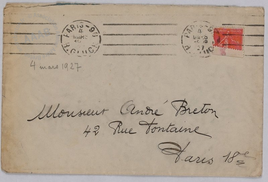 PARIS
PARIS
4 mars 1927
Monsieur André Breton
42 Rue Fontaine
Paris 18e